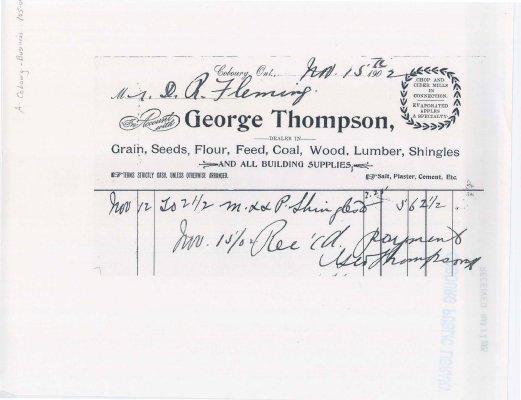 Cobourg Ont., Nov. 15th 1902
CHOP AND
CIDER MILLS
IN
CONNECTION.
EVAPORATED
APPLES
A SPECIALTY.
Mr. D. R. Fleming.
In Account with George Thompson,
DEALER IN
Grain, Seeds, Flour, Feed, Coal, Wood, Lumber, Shingles
AND ALL BUILDING SUPPLIES,
TERMS STRICTLY CASH, UNLESS OTHERWISE ARRANGED.
Salt, Plaster, Cement, Etc.
Nov 12 To 2 1/2 m. Shingles 2.25 5 62 1/2
Nov. 15/02 Rec'd. payment
Geo Thompson
RECEIVED
COBOURG PUBLIC LIBRARY